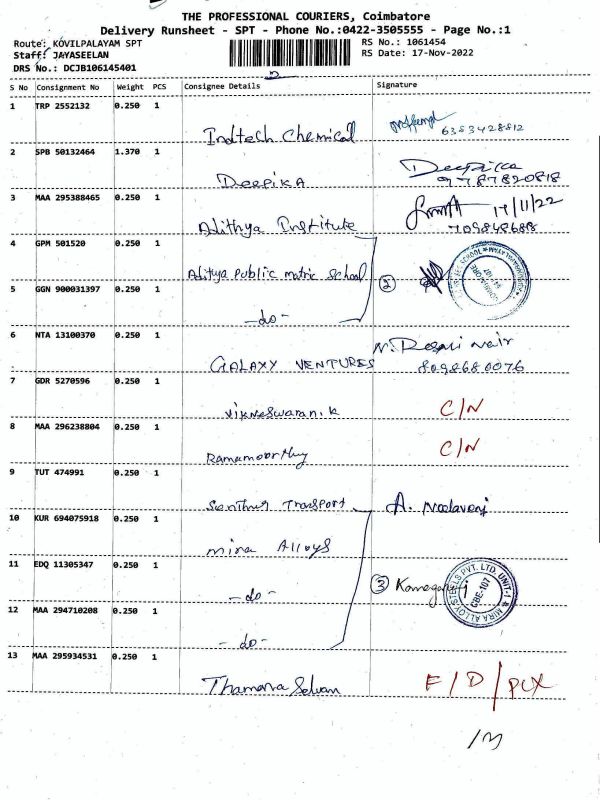 THE PROFESSIONAL COURIERS, Coimbatore
Delivery Runsheet - SPT - Phone No.:0422-3505555 - Page No.:1
Route: KOVILPALAYAM SPT
RS No.: 1061454
Staff: JAYASEELAN
RS Date: 17-Nov-2022
DRS No.: DCJB106145401
S No Consignment No Weight PCS Consignee Details Signature
1 TRP 2552132 0.250 1
Indtech Chemical 6383428812
2 SPB 50132464 1.370 1
DeepikA Deepika
9787820818
3 MAA 295388465 0.250 1
Adithya Institute 17/11/22
4 GPM 501520 0.250 1
Aditya Public matric School
5 GGN 900031397 0.250 1 2
-do-
6 NTA 13100370 0.250 1
GALAXY VENTURES Nair
8098680076
7 GDR 5270596 0.250 1
Vikneswaran.k C/N
8 MAA 296238804 0.250 1
Ramamoorthy C/N
9 TUT 474991 0.250 1
Senthur Transport A. Neelaveni
10 KUR 694075918 0.250 1
mira Alloys
11 EDQ 11305347 0.250 1
-do- 3
MIRA ALLOY STEELS PVT. LTD. UNIT-1
CBE-107
12 MAA 294710208 0.250 1
-do-
13 MAA 295934531 0.250 1
Thamarai Selvan F/D/PCX
/13